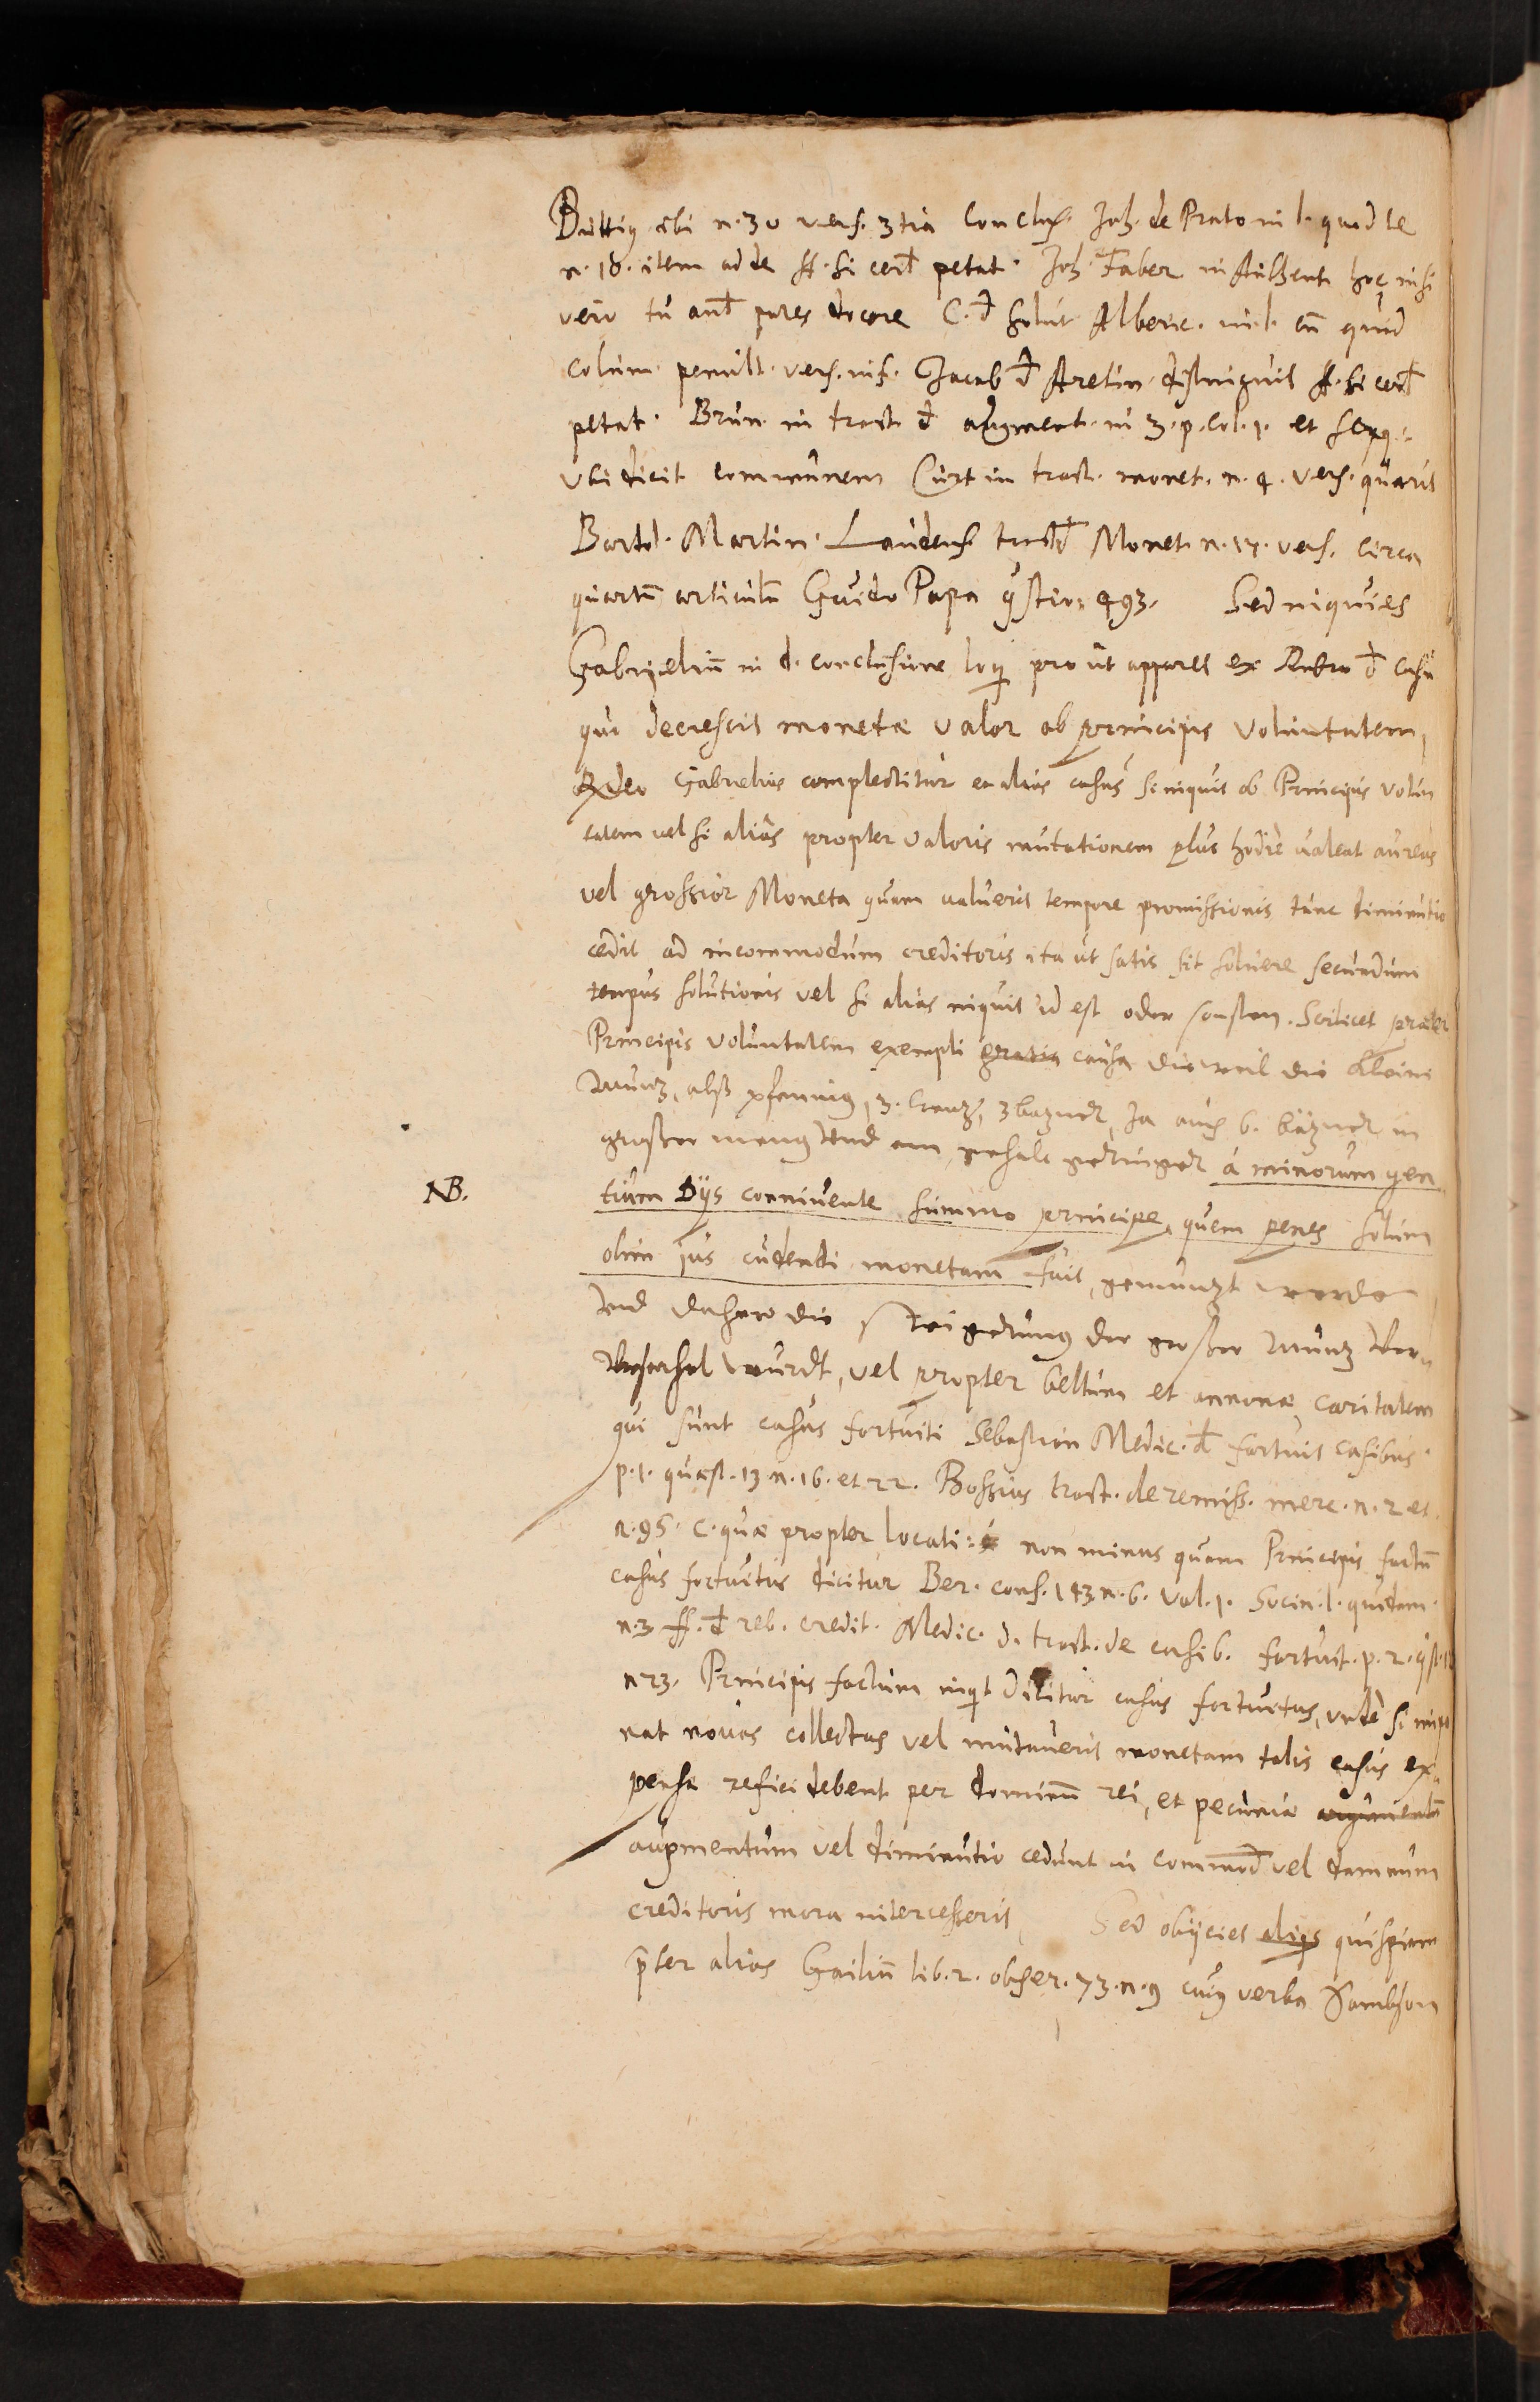 Buttig ibi n. 30 vers. 3tia Conclus. Joh. de Prato in l. quod te
n. 18. item adde ff. si cert petat. Joh. Faber in Authent. hoc nisi
vero tu ant pares docere C. d solut Alberic. in l. cū quid
colum. penult. vers. inf. Jacob d Aretin distinguit ff. si cert
petat. Brun. in tract. d augment. in 3. p. col. 1. et seqq.
ubi dicit communem Curt in tract. monet. n. 4. vers. quarit
Bartol. Martin. Laudens tract d Monet. n. 17. vers. circa
quartū articulū Guido Papa qstio: 493. Sed inquies
Gabrielium in d. conclusione loqi pro ut apparet ex Rubro d casu
quo decrescit monetæ valor ob principis voluntatem,
Gabrielius complectitur et alios casus si inquit ob Principis volun
tatem vel si alias propter valoris mutationem plus hodie valeat aureus
vel grossior Moneta quam valuerit tempore promissionis tunc diminutio
cedit ad incommodum creditoris ita ut satis sit soluere secundum
tempus solutionis vel si alias inquit id est oder sonsten. Scilicet præter
Principis voluntatem exempli gratia causa dieweil die kleine
Muntz, alß pfenning, 3. Creutz, 3 batzner, Ja auch 6. bätzner in
großer meng und am gehalt geringer á minorum gen
NB. tium Dijs conniuente summo principe, quem penes solum
olim jus cudendi monetam fuit, gemuntzt werde
und dahero die steigerung der großer Muntz
wurdt, vel propter bellum et annonæ caritatem
qui sunt casus fortuiti Sebastian Medic. d fortuit casibus.
p. 1. quæst. 13 n. 16. et 22. Bossius tract. de remiss. merc. n. 2 et
n. 95. C. quæ propter locati: non minus quam Principis factū
casus fortuitus dicitur Ber. cons. 143 n. 6. vol. 1. Socin. l. quidam.
n. 3 ff. d reb. credit. Medic. d. tract. de casib. fortuit. p. 2. qst. 11
n 23. Principis factum inqt dicitur casus fortuitus, unde si impo
nat nouas collectas vel mutauerit monetam talis casus ex
pensa refici debent per dominū rei, et pecuniæ augmentū
augmentum vel diminutio cedunt in commod vel damnum
creditoris mora intercesserit, Sed obijciet aliqs quispiam
p̄ter alios Gailiū lib. 2. obser. 73. n. 9 cuig verba